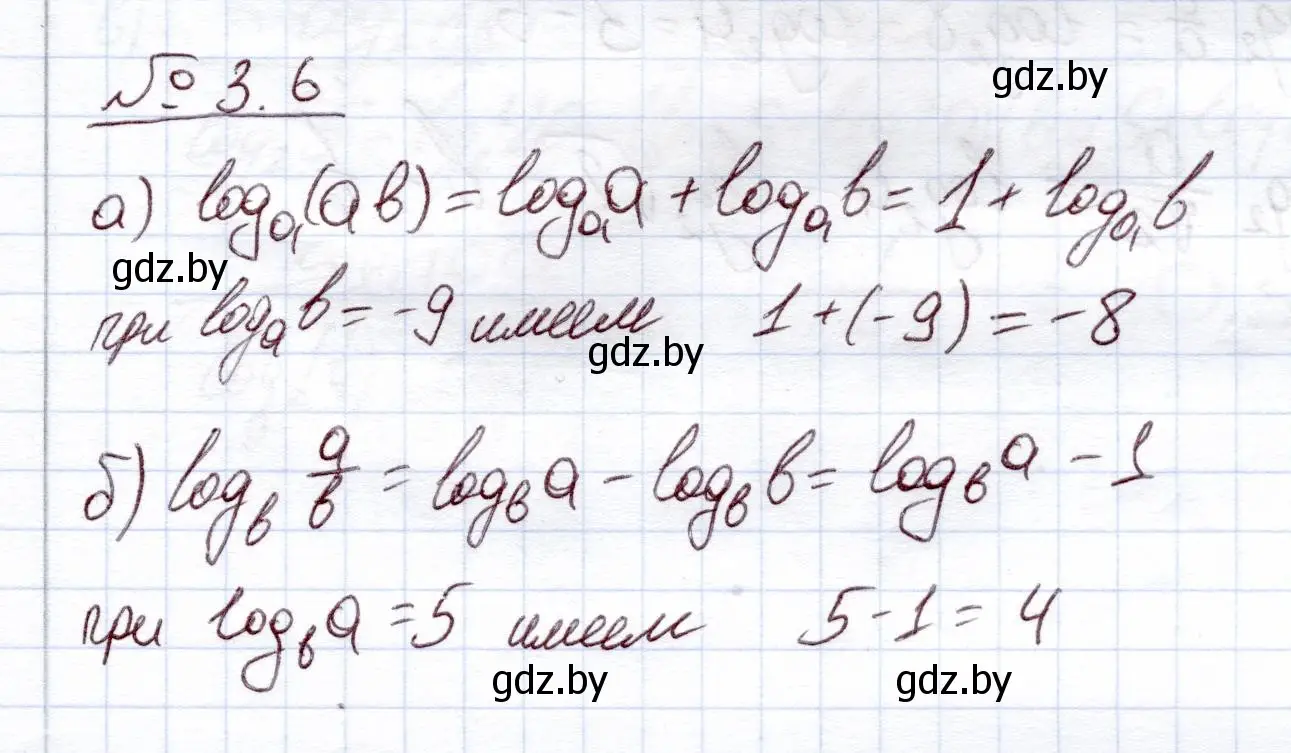 № 3.6
gdz.by
а) logₐ(ab) = logₐa + logₐb = 1 + logₐb
gdz.by
при logₐb = -9 имеем 1 + (-9) = -8
gdz.by
б) log_b a/b = log_b a - log_b b = log_b a - 1
при log_b a = 5 имеем 5 - 1 = 4
gdz.by gdz.by